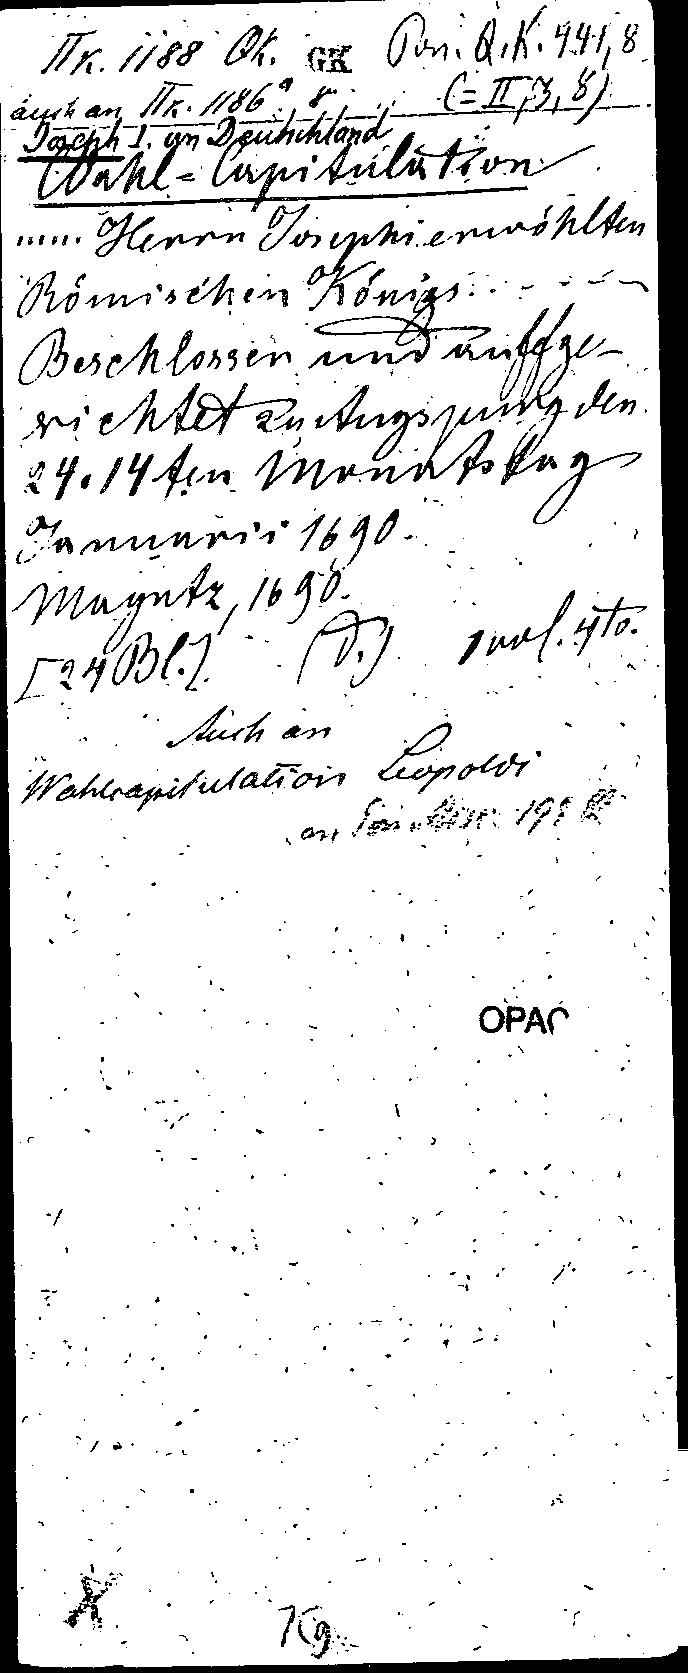 IIk. 1188 Qk. GK Pon. Q.K. 441,8
auch an IIk. 1186ª, 8 (= II, 3, 8)
Joseph I. von Deutschland
Wahl = Capitulation
...... Herrn Josephi erwöhlten
Römischen Königs. - - - -
Beschlossen und auffge-
richtet zu Augspurg den
24.14ten Monatstag
Januarii 1690.
Mayntz, 1690.
[24 Bl.] (D.) 1 vol. 4to.
Auch an
Wahlcapitulation Leopoldi
an
OPAC